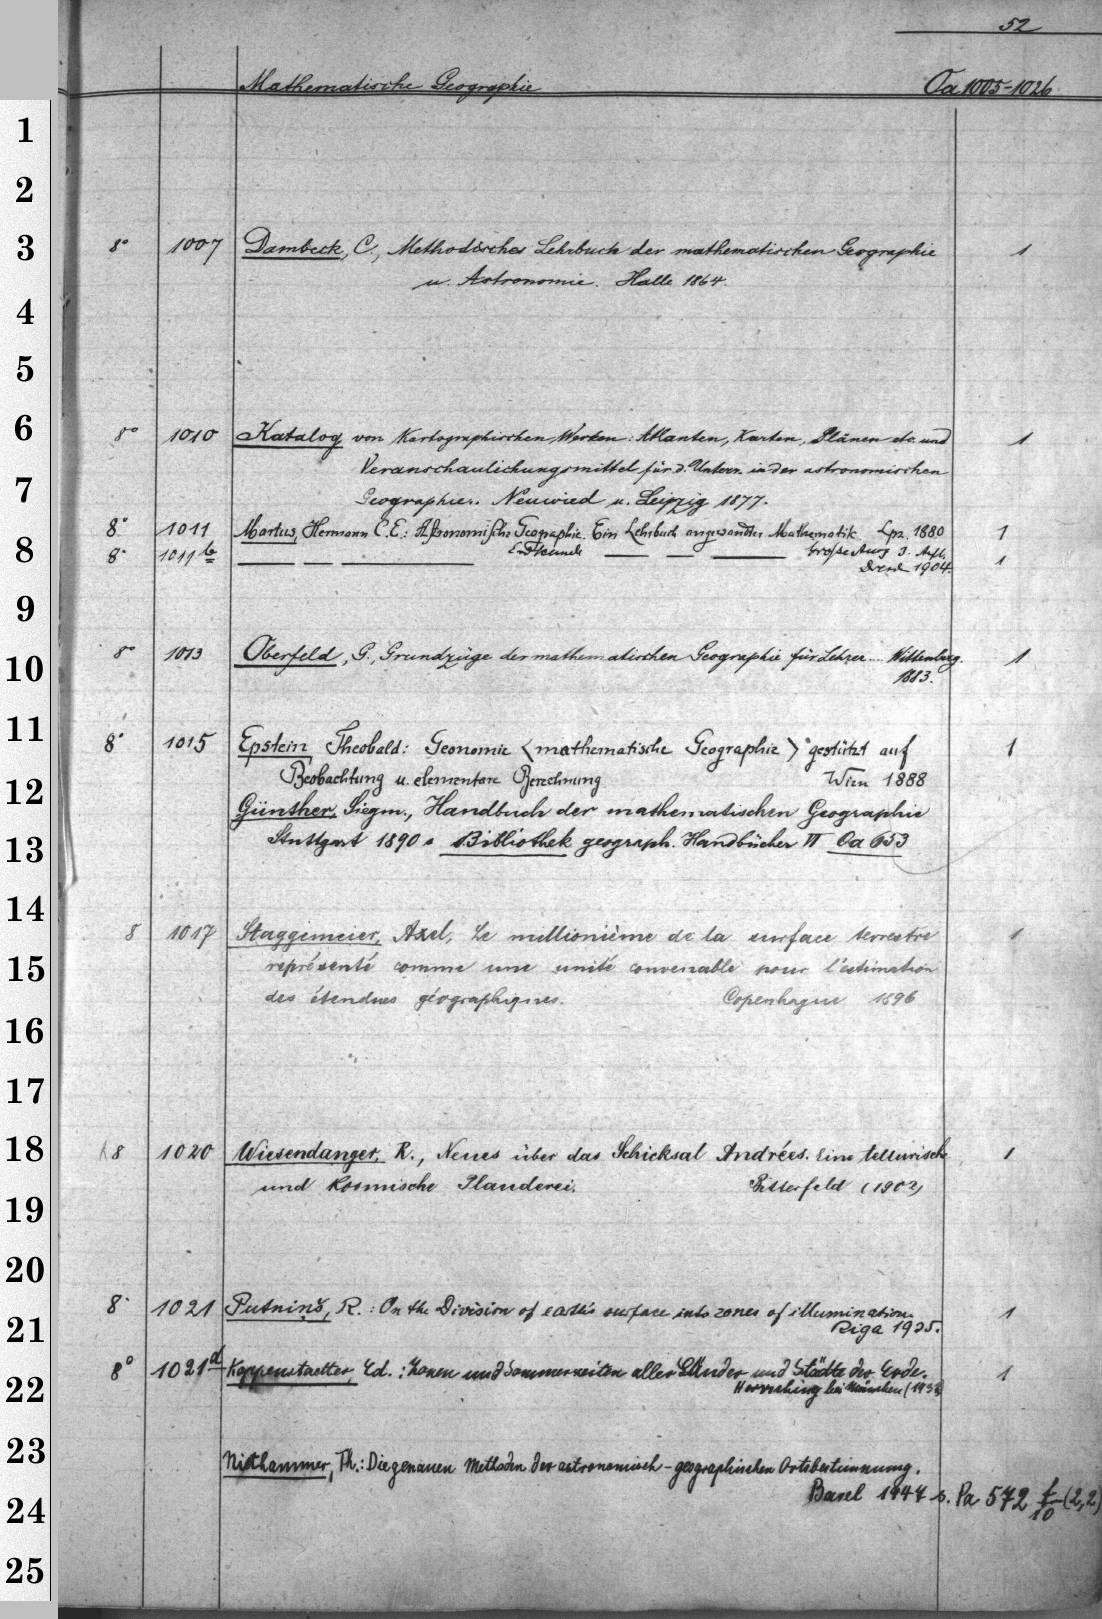 52
Mathematische Geographie Oa 1005-1026
1
2
3 8° 1007 Dambeck, C., Methodisches Lehrbuch der mathematischen Geographie 1
u. Astronomie. Halle 1864.
4
5
6 8° 1010 Katalog von Kartographischen Werken: Atlanten, Karten, Plänen etc. und 1
Veranschaulichungsmittel für d. Unterr. in der astronomischen
7 Geographie.. Neuwied u. Leipzig 1877.
8° 1011 Martus, Hermann C. E.: Astronomische Geographie. Ein Lehrbuch angewandter Mathematik Lpz. 1880 1
8 8° 1011 b — — — Erdkunde — — — Große Ausg 3. Aufl. 1
Dresd 1904.
9
10 8° 1013 Oberfeld, G., Grundzüge der mathematischen Geographie für Lehrer .... Wittenberg. 1
1883.
11 8° 1015 Epstein Theobald: Geonomie <mathematische Geographie> gestützt auf 1
12 Beobachtung u. elementare Berechnung Wien 1888
Günther, Siegm., Handbuch der mathematischen Geographie
13 Stuttgart 1890 s Bibliothek geograph. Handbücher VI Oa 653
14 8 1017 Staggemeier, Axel, Le millionième de la surface terrestre 1
15 représenté comme une unité convenable pour l'estimation
des étendues géographiques. Copenhague 1896
16
17
18 8 1020 Wiesendanger, R., Neues über das Schicksal Andrées. Eine tellurische 1
19 und kosmische Plauderei. Bitterfeld (1902)
20
8° 1021 Putniņš, R.: On the Division of earth's surface into zones of illumination. 1
21 Riga 1935.
22 8° 1021 a Koppenstaetter, Ed.: Zonen und Sommerzeiten aller Länder und Städte der Erde. 1
Herrsching bei München
23 Niethammer, Th.: Die genauen Methoden der astronomisch-geographischen Ortsbestimmung.
24 Basel 1947 s. Pa 572 f/10 (2,2)
25